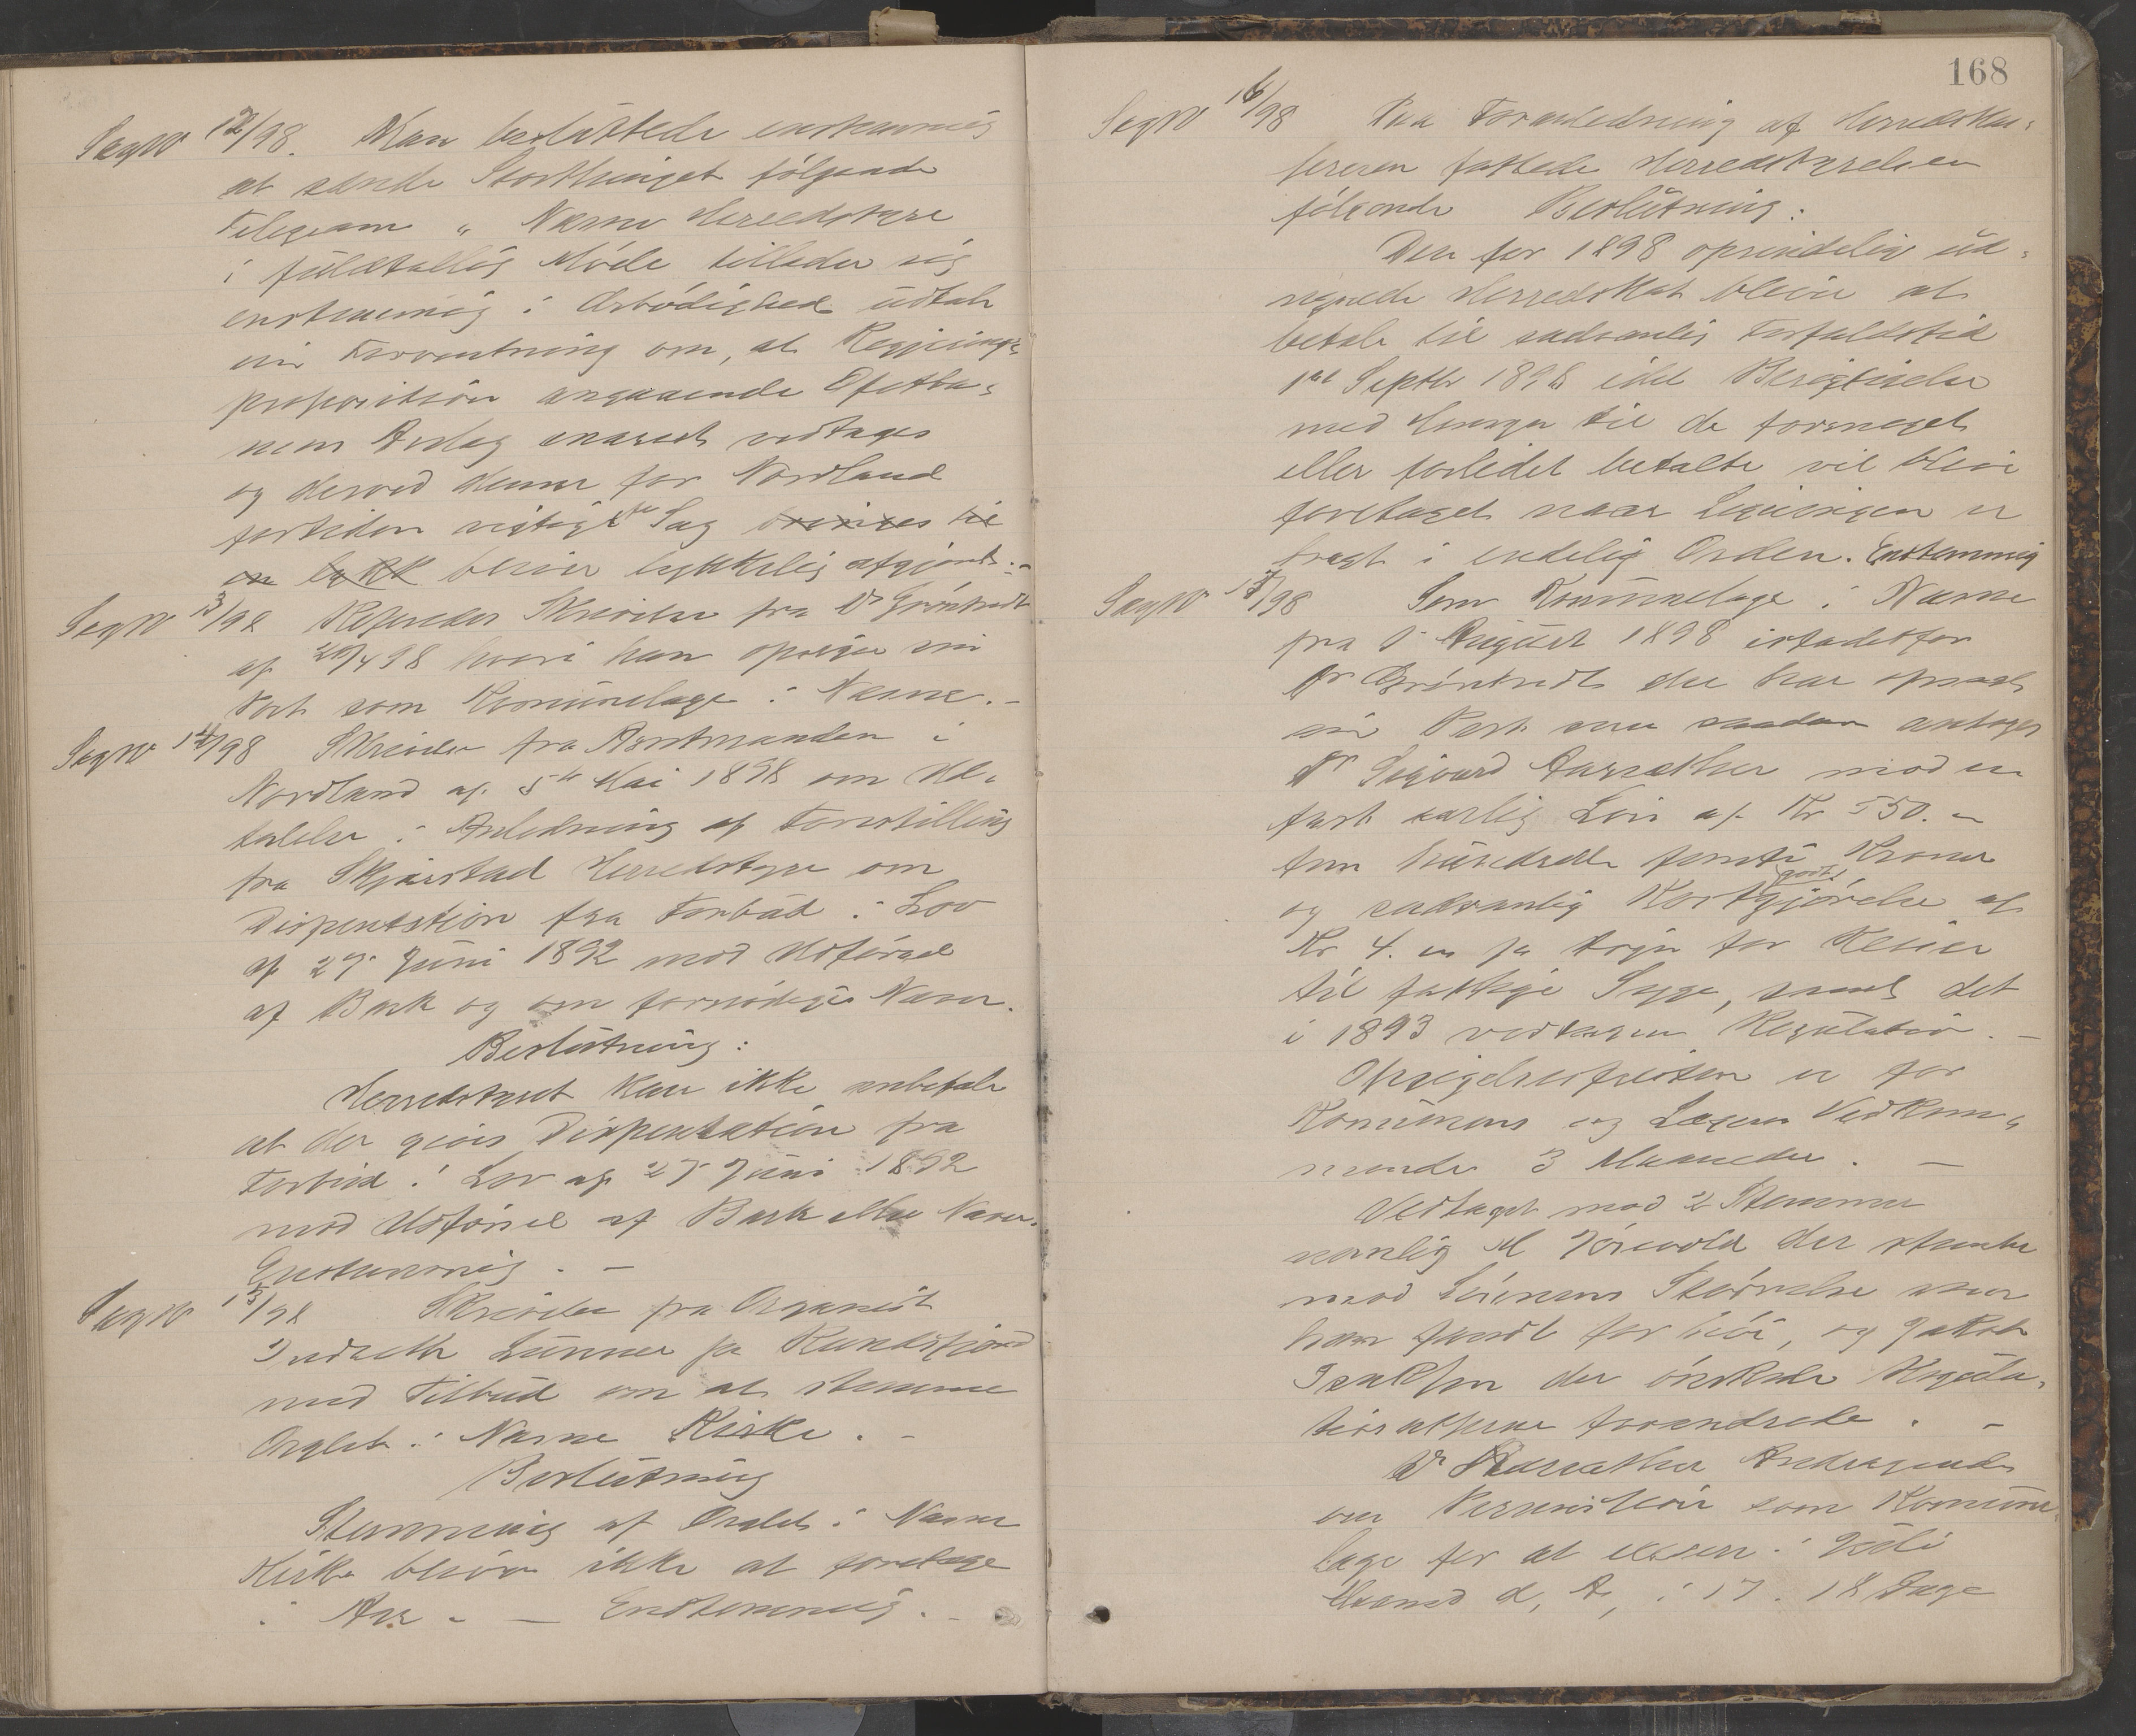 Sag No 12/98. Man besluttede enstemmig
at sende Storthinget følgende
Telegram „ Værne Herredstyre
i fuldtallig Møde tillader sig
enstemmig i Ærbødighed udtale
sin Forventning om, at Regjerings-
proposition angaaende Ofotba-
nens Anlæg snarest vedtages
og derved denne for Nordland
fortiden vigtigste Sag bringes til
en lykk bliver lykkelig afgjordt. -
Sag No 13/98 Refereres Skrivelse fra Dr Grøntvedt
af 29/4 98 hvori han opsiger sin
Post som Kommunelæge i Værne. -
Sag No 14/98 Skrivelse fra Amtmanden i
Nordland af 5te Mai 1898 om Ud-
talelse i Anledning af Forestilling
fra Skjerstad Herredstyre om
Dispensation fra Forbud i Lov
af 27 Juni 1892 mod Udførsel
af Bark og om fornødiges Næver.
Beslutning:
Herredstyret kan ikke anbefale
at der gives Dispensation fra
Forbud i Lov af 27 Juni 1892
mod Udførsel af Bark eller Næver.
Enstemmig. -
Sag No 15/98 Skrivelse fra Organist
Lunner pr
med Tilbud om at stemme
Orglet i Værne Kirke. -
Beslutning
Stemming af Orglet i Værne
Kirke bliver ikke at foretage
i Aar. - Enstemmig. -
168
Sag No 16/98 Paa Foranledning af Herredskas-
sereren fattede Herredstyrelsen
følgende Beslutning:
Den for 1898 oprindelig ud-
lignede Herredskat bliver at
betale til sædvanlig Forfaldstid
1ste Septbr 1898 idet Berigtigelse
med Hensyn til de formeget
eller forlidet betalte vil blive
foretaget naar Ligningen er
bragt i endelig Orden. Enstemmig
Sag No 17/98 Som Kommunelæge i Værne
fra 1 August 1898 istadetfor
Dr Grøntvedt der har opsagt
sin Post som saadan antages
Dr Sigvard Aasræther mod en
fast aarlig Løn af Kr 550. -
fem hundrede femti Kroner
og sædvanlig Kostgodtgjørelse af
Kr 4. - pr Døgn for Reiser
til fattige Syge, samt det
i 1893 vedtagne Regulativ. -
Opsigelsesfristen er for
Kommunens og Lægens Vedkom-
mende 3 Maaneder. -
Vedtaget mod 2 Stemmer
nemlig M der stemte
mod Lønnens Størrelse som
han fandt for liden, og Jakob
Isaksen der ønskede Regula-
tivsatserne forandrede. -
Dr Aasræther Andragende
om Permission som Kommune-
læge for at exsere i Juli
Maaned d, A, i 17. 18 Dage